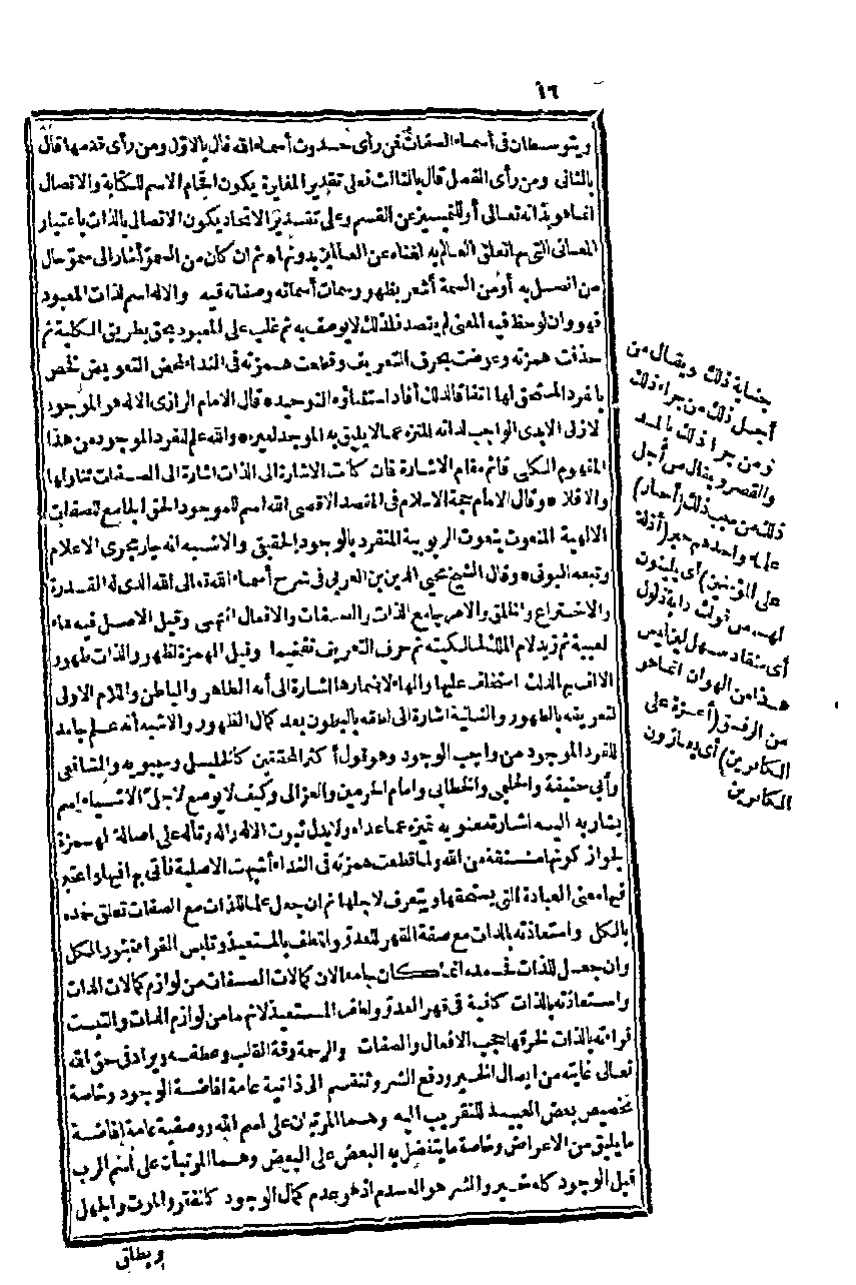 ١٦
ويتوسطان في أسماء الصفات فمن رأى حدوث أسماء الله قال بالاول ومن رأى قدمها قال
بالثاني ومن رأى الفصل قال بالثالث فعلى تقدير المغايرة يكون اقحام الاسم للكتابة والاتصال
انما هو بذاته تعالى أو للتمييز عن القسم وعلى تقدير الاتحاد يكون الاتصال بالذات باعتبار
المعاني التي بها تعلق العالم به لغناه عن العالمين بدونها ثم ان كان من السمو أشار الى سمو حال
من اتصل به أو من السمة أشعر بظهور سمات أسمائه وصفاته فيه والاله اسم لذات المعبود
فهو وان لوحظ فيه المعنى لم يقصد فلذلك لا يوصف به ثم غلب على المعبود بحق بطريق الكلية ثم
حذفت همزته وعوضت بحرف التعريف وقطعت همزته في النداء لمحض التعويض فخص
بالفرد المستحق لها اتفاقا لذلك أفاد استثناؤه التوحيد * قال الامام الرازي الاله هو الموجود
لازلى الابدى الواجب لذاته المنزه عما لا يليق به الموجد لغيره * والله علم للفرد الموجود من هذا
المفهوم الكلى قائم مقام الاشارة فان كانت الاشارة الى الذات اشارة الى الصفات تناولها
والا فلا * وقال الامام حجة الاسلام في المقصد الاقصى الله اسم للموجود الحق الجامع لصفات
الالهية المنعوت بنعوت الربوبية المتفرد بالوجود الحقيقي والاشبه انه جار مجرى الاعلام
وتبعه البونى * وقال الشيخ محيى الدين بن العربي في شرح أسماء الله تعالى الله الذى له القدرة
والاختراع والخلق والامر جامع الذات والصفات والافعال انتهى وقيل الاصل فيه هاء
لغيبة ثم زيد لام الملك لمالكيته ثم حرف التعريف تفخيما وقيل الهمزة لظهور الذات ظهور
الالف بالذات استخلف عليها والهاء لاضمارها اشارة الى أنه الظاهر والباطن واللام الاولى
لتعريفه بالظهور والثانية اشارة الى اتصافه بالبطون بعد كمال الظهور والاشبه أنه علم جامد
للفرد الموجود من واجب الوجود وهو قول أكثر المحققين كالخليل وسيبويه والشافعى
وأبى حنيفة والحليمى والخطابى وامام الحرمين والغزالى وكيف لا يوضع لاجل الاشياء اسم
يشار به اليه اشارة معنوية تميزه عما عداه ولا يدل ثبوت الاله واله وتأله على اصالة الهمزة
لجواز كونها مشتقة من الله ولما قطعت همزته في النداء أشبهت الاصلية فأتى بها فيها واعتبر
فيها معنى العبادة التي يستحقها ويتعرف لاجلها ثم ان جعل علما للذات مع الصفات تعلق حمده
بالكل واستعاذته بالذات مع صفة القهر للعدو واللطف بالمستعيذ وتلبس القراءة بنور الكل
وان جعل للذات فحمده انما كان جامعا لان كمالات الصفات من لوازم كمالات الذات
واستعاذته بالذات كافية في قهر العدو ولطف المستعيذ لانهما من لوازم الذات والتبست
قراءته بالذات لخرقها حجب الافعال والصفات والرحمة رقة القلب وعطفه ويراد فى حق الله
تعالى غايته من ايصال الخير ودفع الشر وتنقسم الى ذاتية عامة افاضة الوجود وخاصة
تخصيص بعض العبيد للتقريب اليه وهما المرتبان على اسم الله ووصفية عامة افاضة
ما يليق من الاعراض وخاصة ما يتفضل به البعض على البعض وهما المرتبات على اسم الرب
قبل الوجود كله خير والشر هو العدم اذ هو عدم كمال الوجود كالفقر والموت والجهل
ويطلق
جناية ذلك ويقال من
أجل ذلك من جراء ذلك
ومن جرا ذلك بالمد
والقصر ويقال من أجل
ذلك من سبب ذلك (أحبار)
علماء واحدهم حبر (أذلة
على المؤمنين) أى يلينون
لهم من قولك دابة ذلول
أى منقاد سهل لين ليس
هذا من الهوان انما هو
من الرفق (أعزة على
الكافرين) أى يعازون
الكافرين